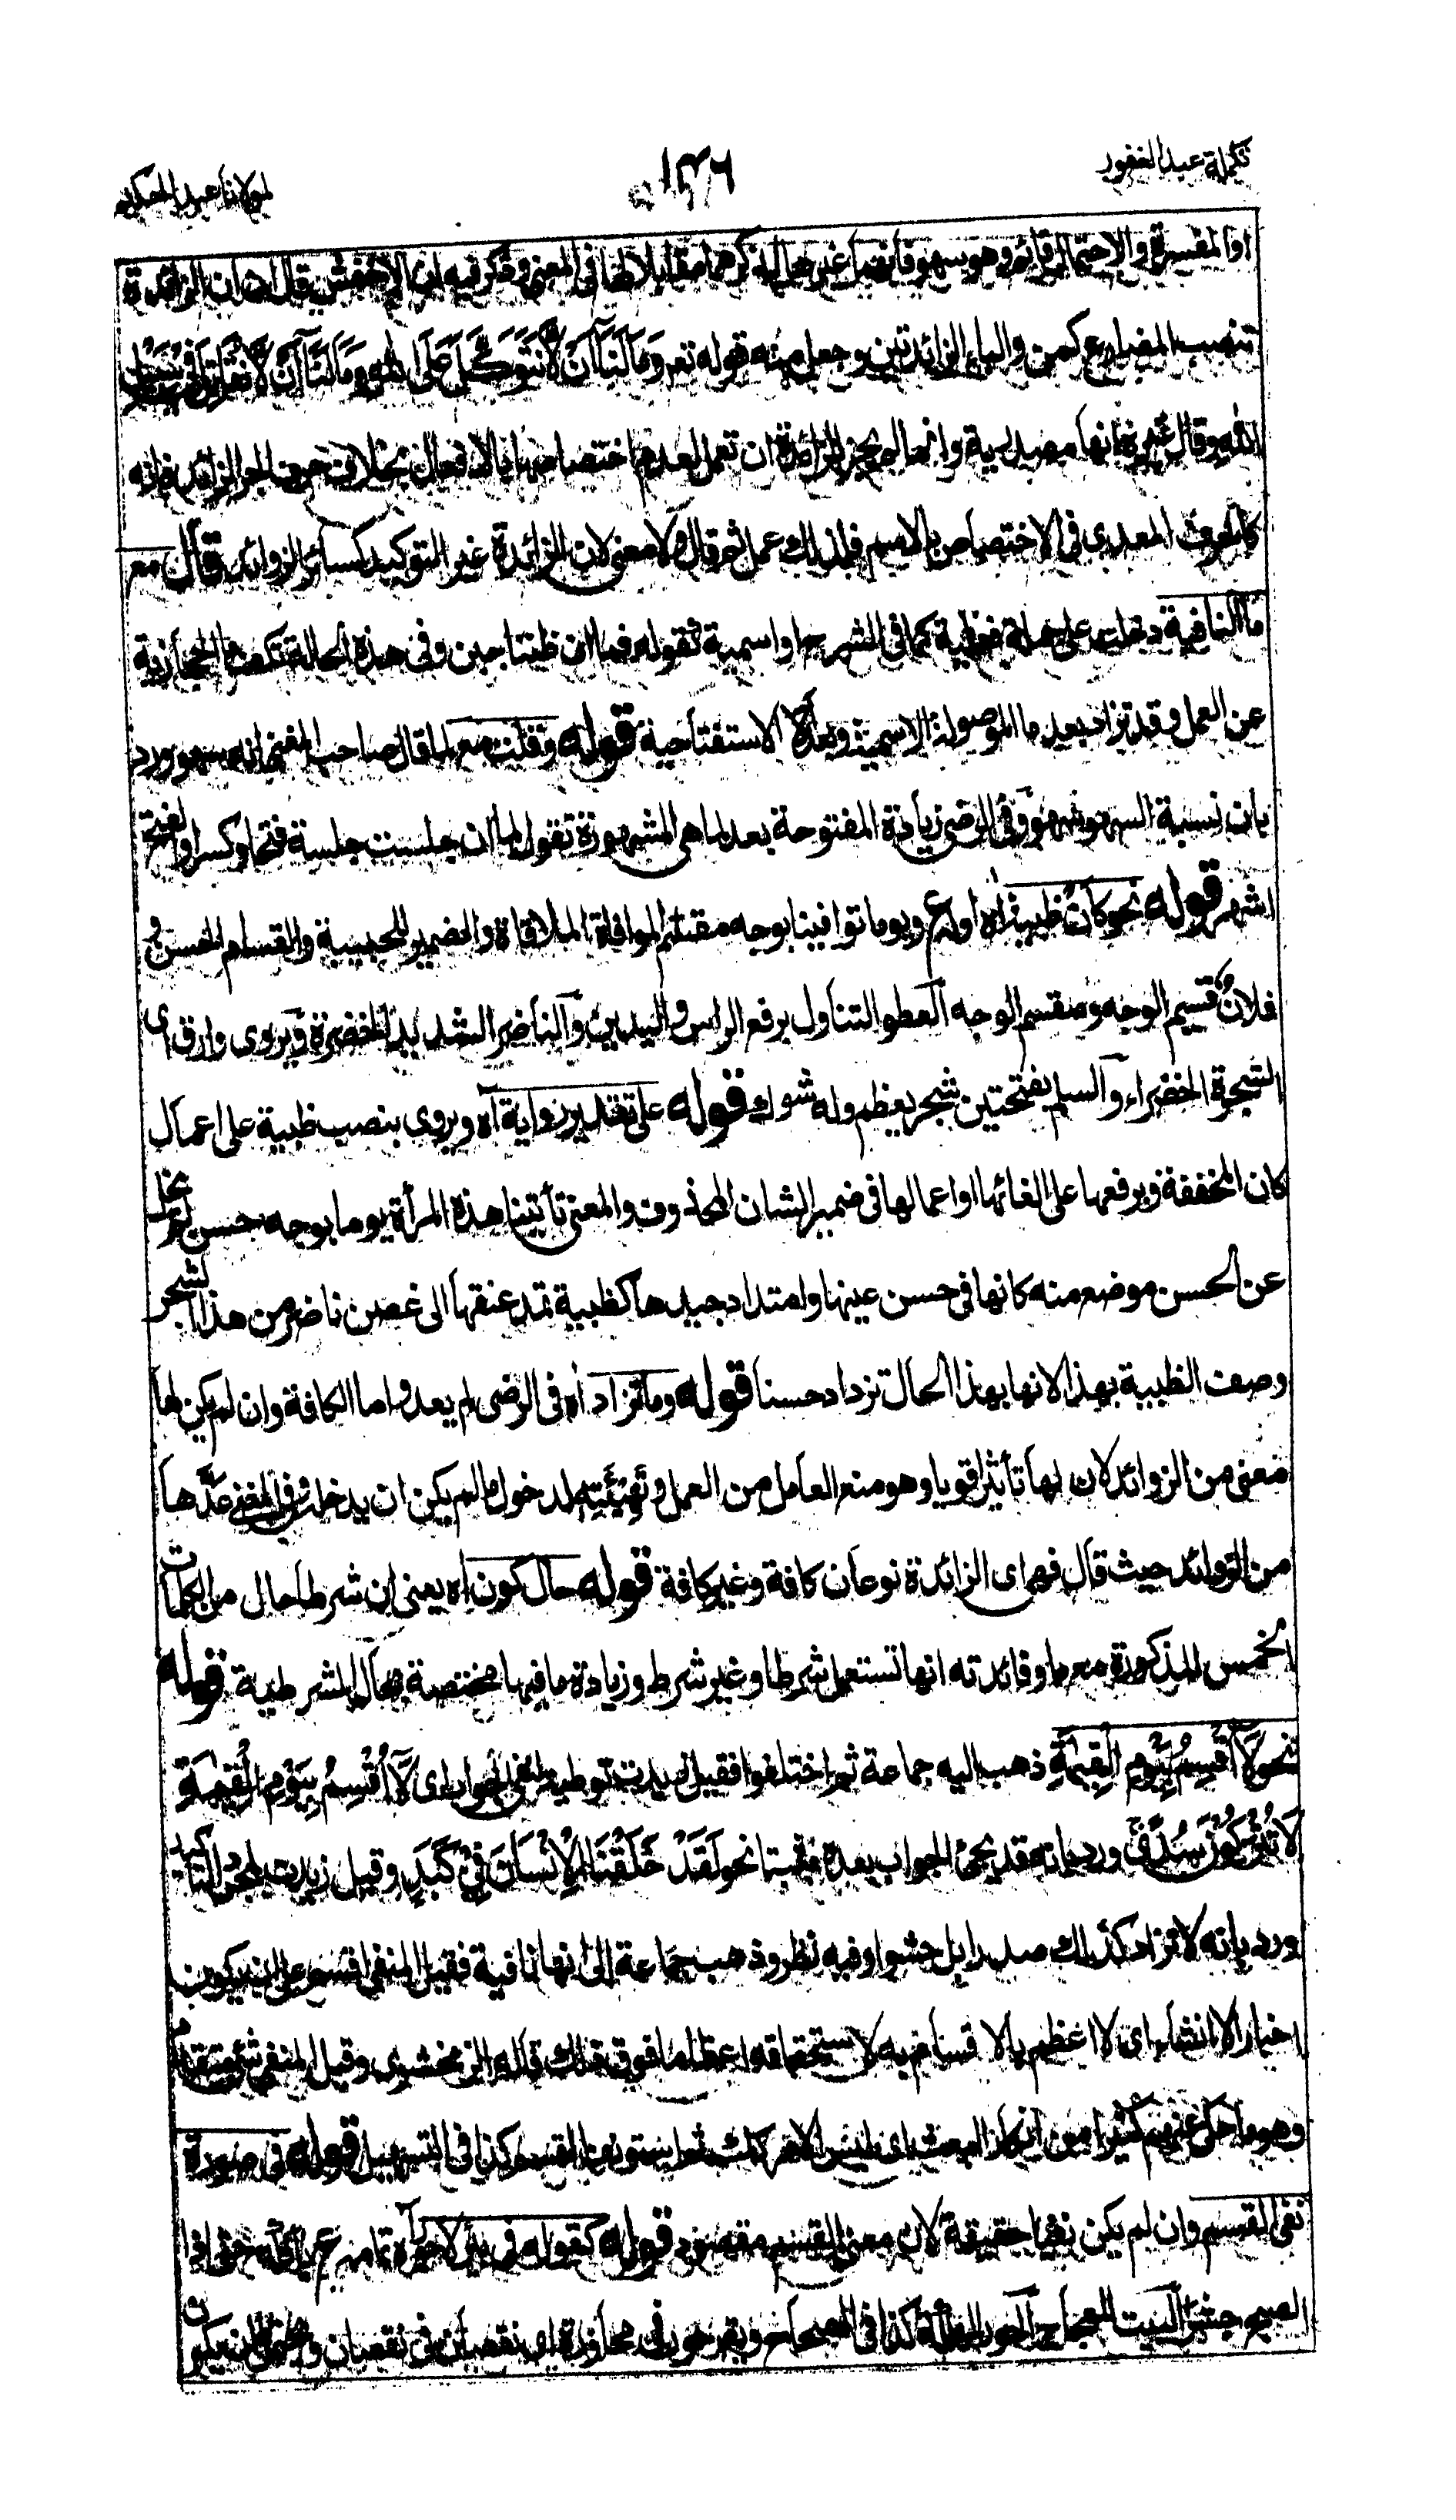 تكملة عبد الغفور
١٣٦
لمولانا عبد الحكيم
او المفسرة والاحتمال قائم وهو سهو فانهما غير حال ذكرهما مقابلا لها في المعنى وذكر فيه ان الاخفش قال ان الزائدة
تنصب المضارع كمن والباء الزائدتين وجعل منه قوله تعر وَمَا لَنَا اَنْ لَّا نَتَوَكَّلَ عَلَى اللهِ وَمَا لَنَا اَنْ لَّا نُقَاتِلَ فِيْ سَبِيْلِ
اللهِ وقال غيره انها مصدرية وانما لم يجز للزائدة ان تعمل لعدم اختصاصها بالافعال بخلاف حرف الجر الزائد فانه
كالحرف المعدى في الاختصاص بالاسم فلذلك عمل ثم قال ولا معنى لان الزائدة غير التوكيد كسائر الزوائد قال مع
ما النافية دخلت على جملة فعلية كما في الشرح او اسمية كقوله فما ان طبنا جبن وفي هذه الحالة تكف ما الحجازية
عن العمل وقد تزاد بعد ما الموصولة الاسمية وبعد الا الاستفتاحية قوله وقلت مع لما قال صاحب المغنى انه سهو ورد
بان نسبة السهو سهو وفي الرضى زيادة المفتوحة بعد لما هى المشهورة تقول لما ان جلست جلسة فتحا وكسرا والفتح
اشهر قوله نحو كان ظبية اه اوله ع ويوما توافينا بوجه مقسم الموافاة الملاقاة والضمير للحبيبة والقسام الحسن و
فلان قسيم الوجه ومقسم الوجه العطو التناول برفع الراس واليدين والناضر الشديد الخضرة ويروى وارق اى
الشجرة الخضراء والسلم بفتحتين شجر يعظم وله شوك قوله على تقدير رواية آه ويروى بنصب ظبية على اعمال
كان المخففة وبرفعها على الغائها او اعمالها في ضمير الشان المحذوف والمعنى تأتينا هذه المرأة يوما بوجه حسن لم يخل
عن الحسن موضع منه كانها في حسن عينها وامتداد جيدها كظبية تمد عنقها الى غصن ناضر من هذا الشجر
وصف الظبية بهذا لانها بهذا الحال تزداد حسنا قوله وما تزاد اه في الرضى لم يعدوا ما الكافة وان لم يكن لها
معنى من الزوائد لان لها تأثيرا قويا وهو منع العامل من العمل وتَهِيْئَتِه لدخول ما لم يكن ان يدخله وفي المغنى عدّها
من الزوائد حيث قال فهى اى الزائدة نوعان كافة وغير كافة قوله حال كون اه يعنى ان شرطا حال من الكلمات
الخمس المذكورة معها وفائدته انها تستعمل شرطا وغير شرط وزيادة ما فيها مختصة بحال الشرطية قوله
نحو لَا اُقْسِمُ بِيَوْمِ الْقِيٰمَةِ ذهب اليه جماعة ثم اختلفوا فقيل زيدت توطية لنفى الجواب اى لَا اُقْسِمُ بِيَوْمِ الْقِيٰمَةِ
لَا تُتْرَكُوْنَ سُدًى ورد بانه قد يجئ الجواب بعده مثبتا نحو لَقَدْ خَلَقْنَا الْاِنْسَانَ فِيْ كَبَدٍ وقيل زيدت لمجرد التاكيد
ورد بانه لا تزاد كذلك صدرا بل حشوا وفيه نظر وذهب جماعة الى انها نافية فقيل المنفى اقسم على ان يكون
اخبارا لا انشاء اى لا اعظم بالاقسام به لاستحقاقه اعظاما فوق ذلك قاله الزمخشرى وقيل المنفى شئ متقدم
وهو ما حكى عنهم كثيرا من انكار البعث اى ليس الامر كذلك ثم استونف القسم كذا في التسهيل قوله في صورة
نفى القسم وان لم يكن نفيا حقيقة لان معنى القسم مقصود قوله كقوله في بئر لا حور آه تمامه ع
الصبح جشر البيت للعجاج الحور الهلكة كذا في الصحاح ويقر حور في محاورة اى نقصان في نقصان ويحتمل ان يكون